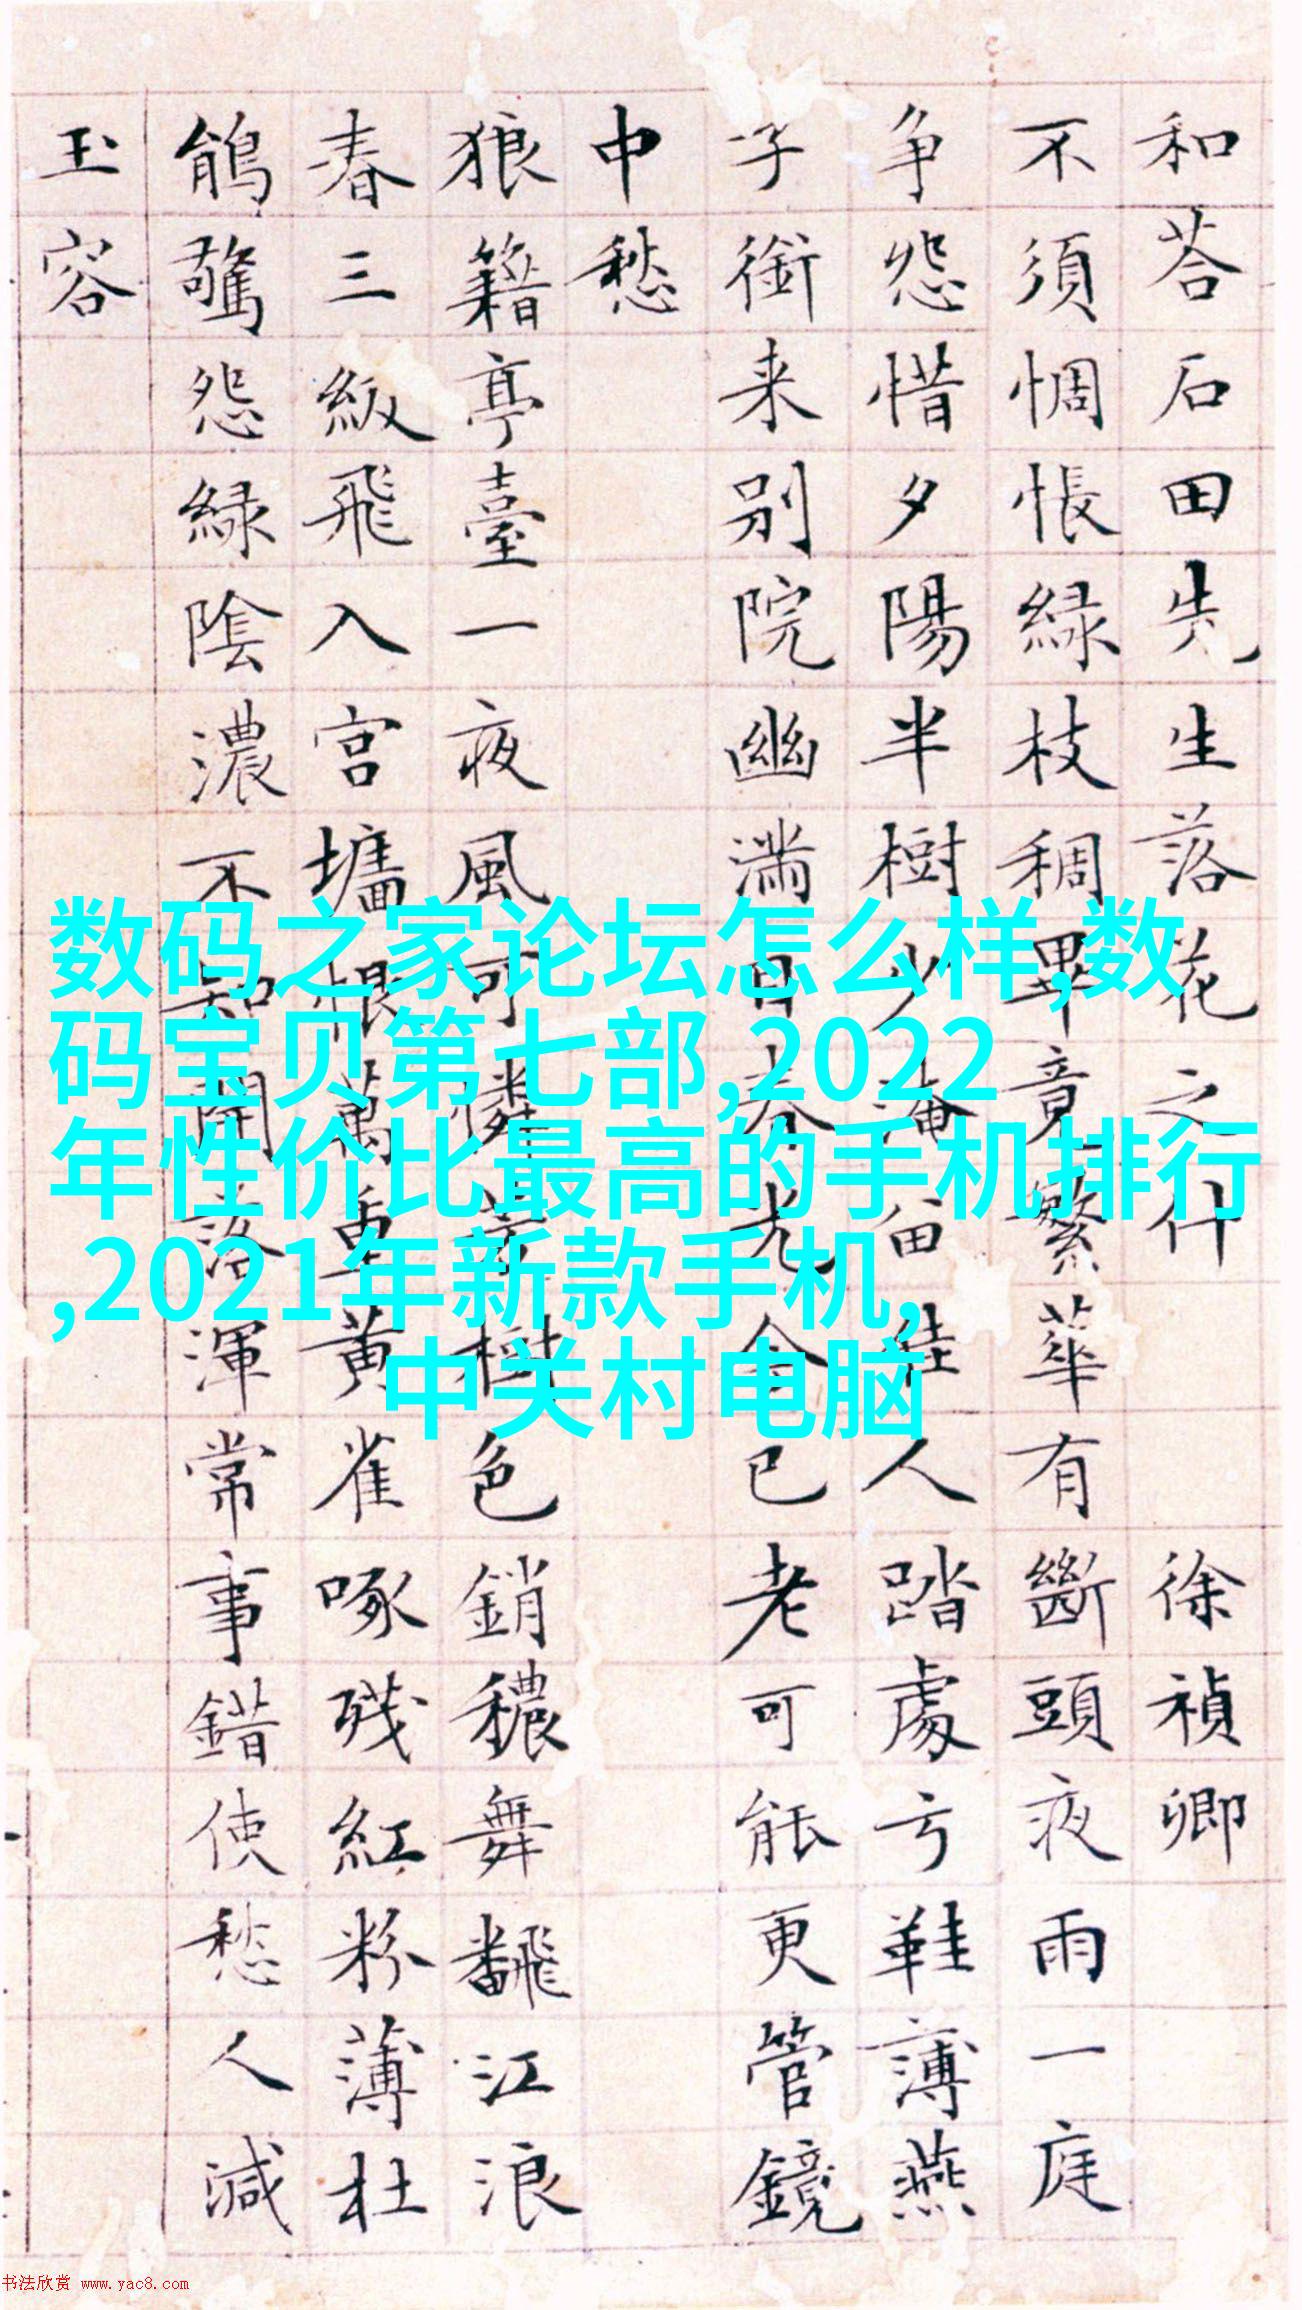 和荅石田先生落花之什 徐禎卿
不須惆悵緑枝稠畢竟繁華有斷頭夜雨一庭
争怨惜夕陽半樹少淹留佳人踏處弓鞋薄燕
子銜来别院幽滿目春光今已老可能更管鏡
中愁
狼籍亭臺一夜風可憐芳樹色銷穠舞飜江浪
春三級飛入宫墻恨萬重黄雀啄殘紅粉薄杜
鵑驚怨緑陰濃不知開落渾常事錯使愁人減
玉容
数码之家论坛怎么样,数
码宝贝第七部,2022
年性价比最高的手机排行
,2021年新款手机,
中关村电脑
书法欣赏 www.yac8.com